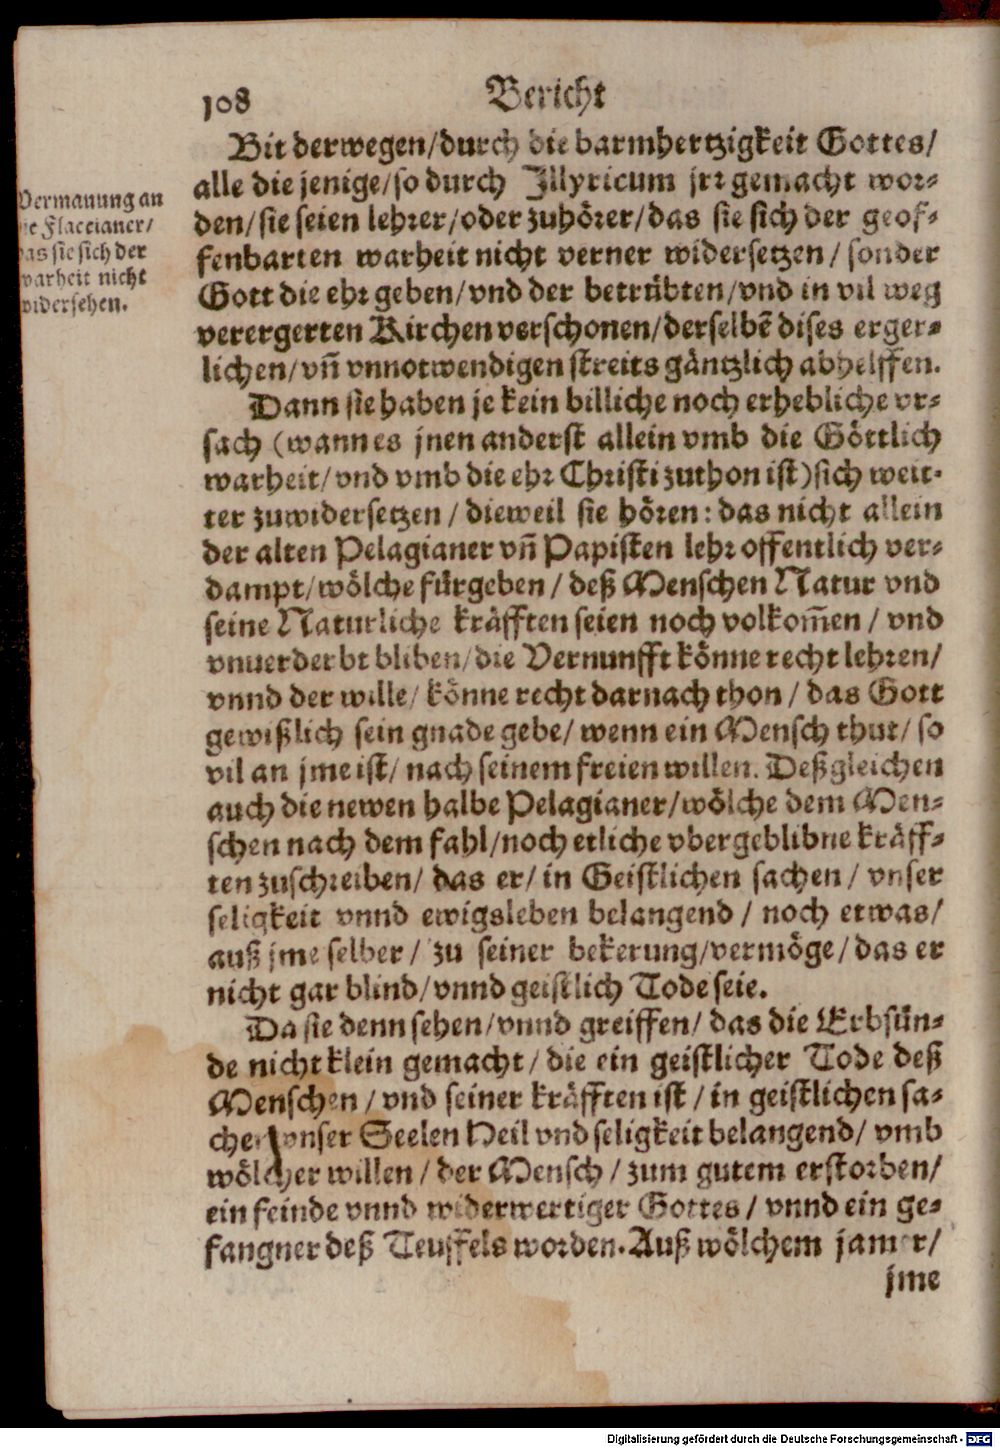 108 Bericht
Bit derwegen/durch die barmhertzigkeit Gottes/
alle die jenige/so durch Jllyricum jrr gemacht wor-
den/sie seien lehrer/oder zuhörer/das sie sich der geof-
fenbarten warheit nicht verner widersetzen/sonder
Gott die ehr geben/vnd der betrübten/vnd in vil weg
verergerten Kirchen verschonen/derselbẽ dises erger-
lichen/vñ vnnotwendigen streits gäntzlich abhelffen.
Dann sie haben je kein billiche noch erhebliche vr-
sach (wann es jnen anderst allein vmb die Göttlich
warheit/vnd vmb die ehr Christi zuthon ist) sich weit-
ter zuwidersetzen/dieweil sie hören: das nicht allein
der alten Pelagianer vñ Papisten lehr offentlich ver-
dampt/wölche fürgeben/deß Menschen Natur vnd
seine Naturliche kräfften seien noch volkom̃en/vnd
vnuerderbt bliben/die Vernunfft könne recht lehren/
vnnd der wille/könne recht darnach thon/das Gott
gewißlich sein gnade gebe/wenn ein Mensch thut/so
vil an jme ist/nach seinem freien willen. Deßgleichen
auch die newen halbe Pelagianer/wölche dem Men-
schen nach dem fahl/noch etliche vbergeblibne kräff-
ten zuschreiben/das er/in Geistlichen sachen/vnser
seligkeit vnnd ewigsleben belangend/noch etwas/
auß jme selber/zu seiner bekerung/vermöge/das er
nicht gar blind/vnnd geistlich Tode seie.
Da sie denn sehen/vnnd greiffen/das die Erbsün-
de nicht klein gemacht/die ein geistlicher Tode deß
Menschen/vnd seiner kräfften ist/in geistlichen sa-
chen/vnser Seelen Heil vnd seligkeit belangend/vmb
wölcher willen/der Mensch/zum gutem erstorben/
ein feinde vnnd widerwertiger Gottes/vnnd ein ge-
fangner deß Teuffels worden. Auß wölchem jamer/
jme
Vermanung an
die Flaccianer/
das sie sich der
warheit nicht
widersehen.
Digitalisierung gefördert durch die Deutsche Forschungsgemeinschaft - DFG